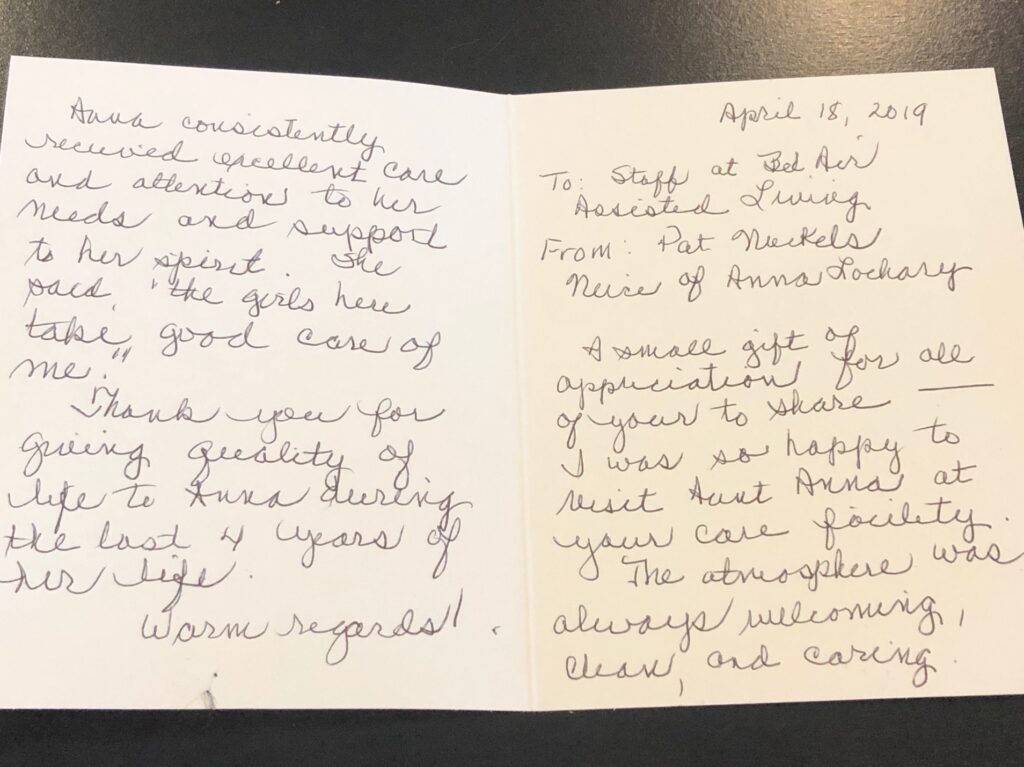 April 18, 2019
To: Staff at Bel Air
Assisted Living
From: Pat Nuckels
Neice of Anna Lochary
A small gift of
appriciation for all
of your to share
I was so happy to
visit Aunt Anna at
your care facility.
The atmosphere was
always welcoming,
clean, and caring.
Anna consistently
received excellent care
and attention to her
needs and support
to her spirit. She
said, "the girls here
take good care of
me."
Thank you for
giving quality of
life to Anna during
the last 4 years of
her life.
Warm regards!